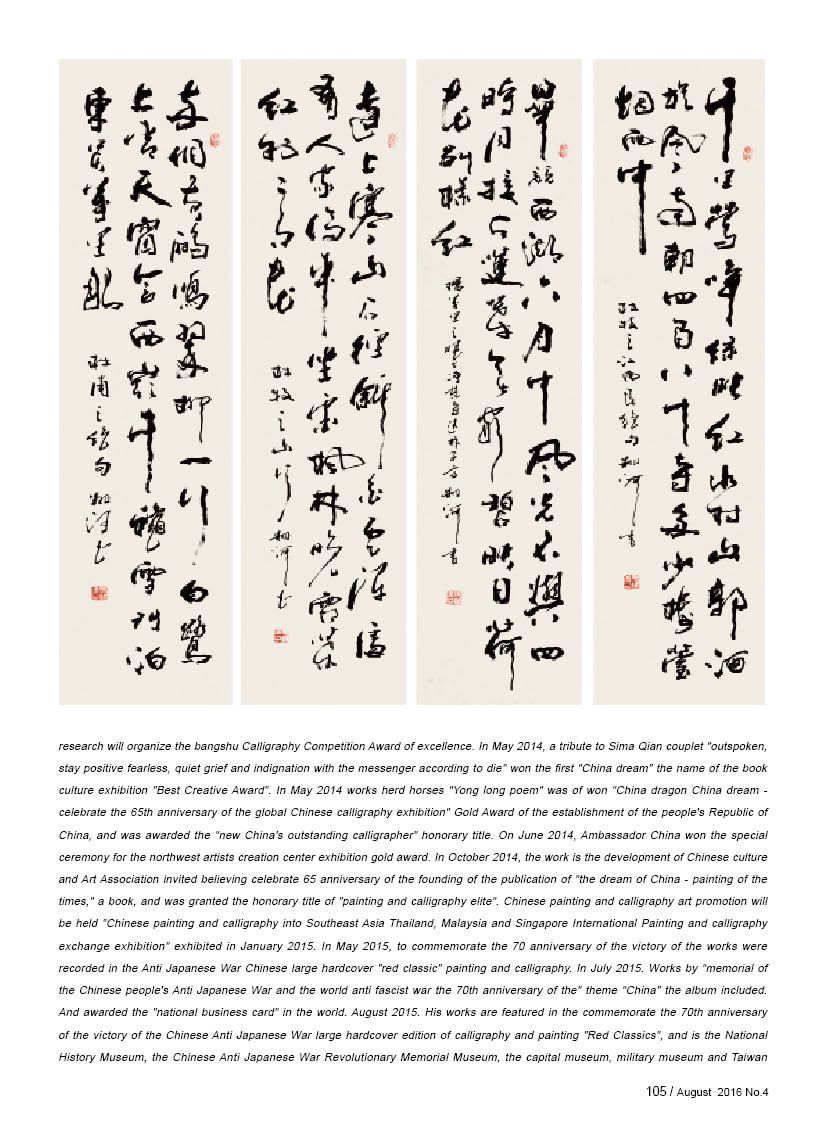 千里鶯啼綠映红水村山郭酒
旗風南朝四百八十寺多少樓臺
烟雨中
杜牧之江南春絕句
畢竟西湖六月中風光不與四
時同接天蓮葉無窮碧映日荷
花别樣红
楊萬里之曉出淨慈寺送林子方
遠上寒山石徑斜白雲深處
有人家停車坐愛楓林晚霜葉
红於二月花
杜牧之山行
两個黄鸝鳴翠柳一行白鷺
上青天窗含西嶺千秋雪門泊
東吴萬里船
杜甫之絕句
research will organize the bangshu Calligraphy Competition Award of excellence. In May 2014, a tribute to Sima Qian couplet "outspoken,
stay positive fearless, quiet grief and indignation with the messenger according to die" won the first "China dream" the name of the book
culture exhibition "Best Creative Award". In May 2014 works herd horses "Yong long poem" was of won "China dragon China dream -
celebrate the 65th anniversary of the global Chinese calligraphy exhibition" Gold Award of the establishment of the people's Republic of
China, and was awarded the "new China's outstanding calligrapher" honorary title. On June 2014, Ambassador China won the special
ceremony for the northwest artists creation center exhibition gold award. In October 2014, the work is the development of Chinese culture
and Art Association invited believing celebrate 65 anniversary of the founding of the publication of "the dream of China - painting of the
times," a book, and was granted the honorary title of "painting and calligraphy elite". Chinese painting and calligraphy art promotion will
be held "Chinese painting and calligraphy into Southeast Asia Thailand, Malaysia and Singapore International Painting and calligraphy
exchange exhibition" exhibited in January 2015. In May 2015, to commemorate the 70 anniversary of the victory of the works were
recorded in the Anti Japanese War Chinese large hardcover "red classic" painting and calligraphy. In July 2015. Works by "memorial of
the Chinese people's Anti Japanese War and the world anti fascist war the 70th anniversary of the" theme "China" the album included.
And awarded the "national business card" in the world. August 2015. His works are featured in the commemorate the 70th anniversary
of the victory of the Chinese Anti Japanese War large hardcover edition of calligraphy and painting "Red Classics", and is the National
History Museum, the Chinese Anti Japanese War Revolutionary Memorial Museum, the capital museum, military museum and Taiwan
105 / August 2016 No.4